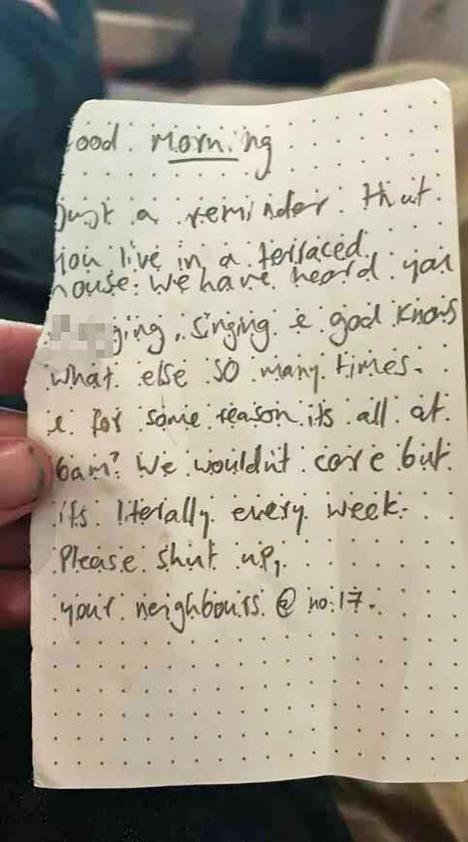 ood morning
just a reminder that
you live in a terraced
house. We have heard you
ging, singing & god knows
what else so many times.
& for some reason its all at
6am? We wouldnt care but
its literally every week.
Please shut up,
your neighbours @ no.17.